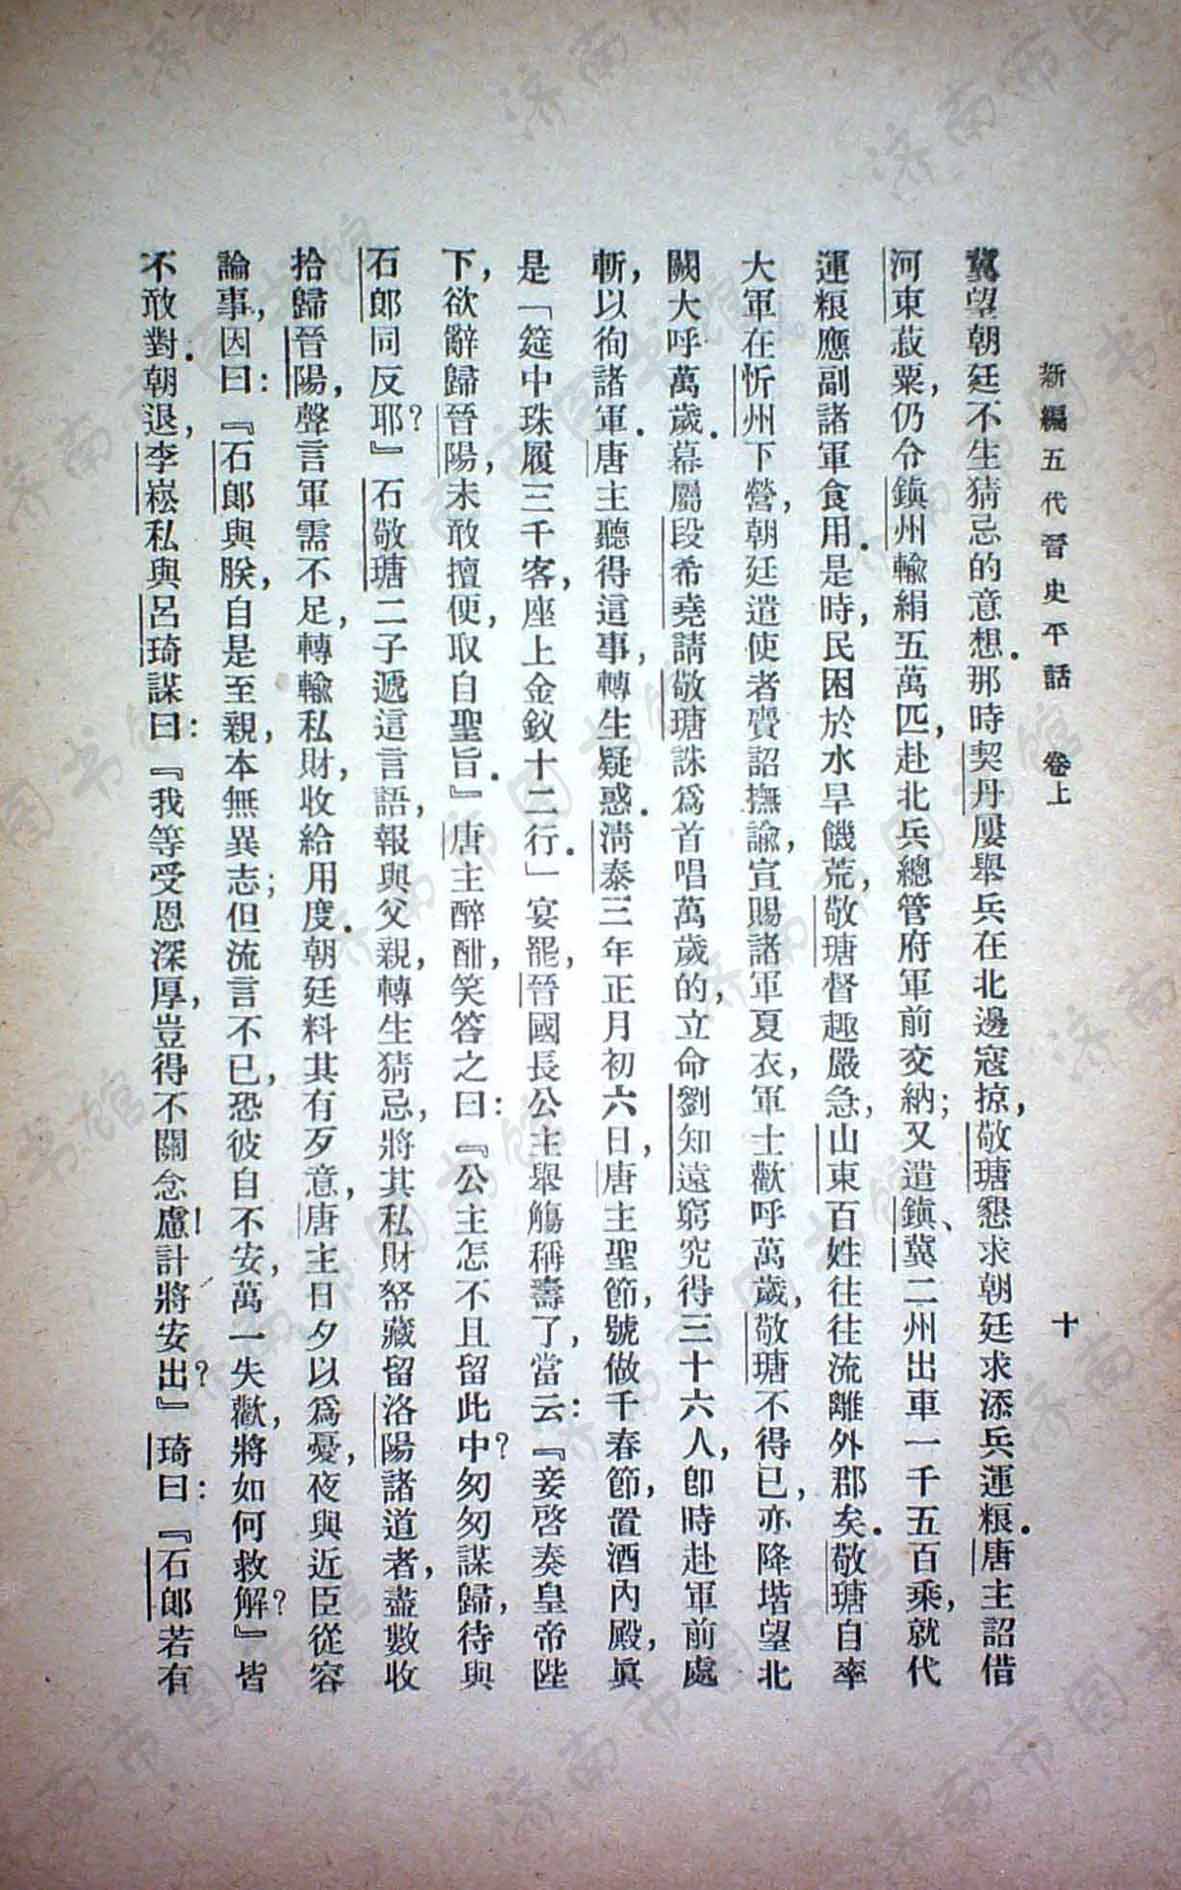 新編五代晉史平話　卷上　十
冀望朝廷不生猜忌的意想。那時契丹屢舉兵在北邊寇掠，敬瑭懇求朝廷求添兵運粮。唐主詔借
河東菽粟，仍令鎮州輸絹五萬匹，赴北兵總管府軍前交納；又遣鎮、冀二州出車一千五百乘，就代
運粮應副諸軍食用。是時，民困於水旱饑荒，敬瑭督趣嚴急，山東百姓往往流離外郡矣。敬瑭自率
大軍在忻州下營，朝廷遣使者賚詔撫諭，宣賜諸軍夏衣，軍士歡呼萬歲，敬瑭不得已，亦降堦望北
闕大呼萬歲。幕屬段希堯請敬瑭誅爲首唱萬歲的，立命劉知遠窮究得三十六人，卽時赴軍前處
斬，以徇諸軍。唐主聽得這事，轉生疑惑。清泰三年正月初六日，唐主聖節，號做千春節，置酒內殿，眞
是「筵中珠履三千客，座上金釵十二行。」宴罷，晉國長公主舉觴稱壽了，當云：『妾啓奏皇帝陛
下，欲辭歸晉陽，未敢擅便，取自聖旨。』唐主醉酣，笑答之曰：『公主怎不且留此中？匆匆謀歸，待與
石郎同反耶？』石敬瑭二子遞這言語，報與父親，轉生猜忌，將其私財帑藏留洛陽諸道者，盡數收
拾歸晉陽，聲言軍需不足，轉輸私財，收給用度。朝廷料其有歹意，唐主日夕以爲憂，夜與近臣從容
論事，因曰：『石郎與朕，自是至親，本無異志；但流言不已，恐彼自不安，萬一失歡，將如何救解？』皆
不敢對。朝退，李崧私與呂琦謀曰：『我等受恩深厚，豈得不關念慮！計將安出？』琦曰：『石郎若有
濟南市图书馆